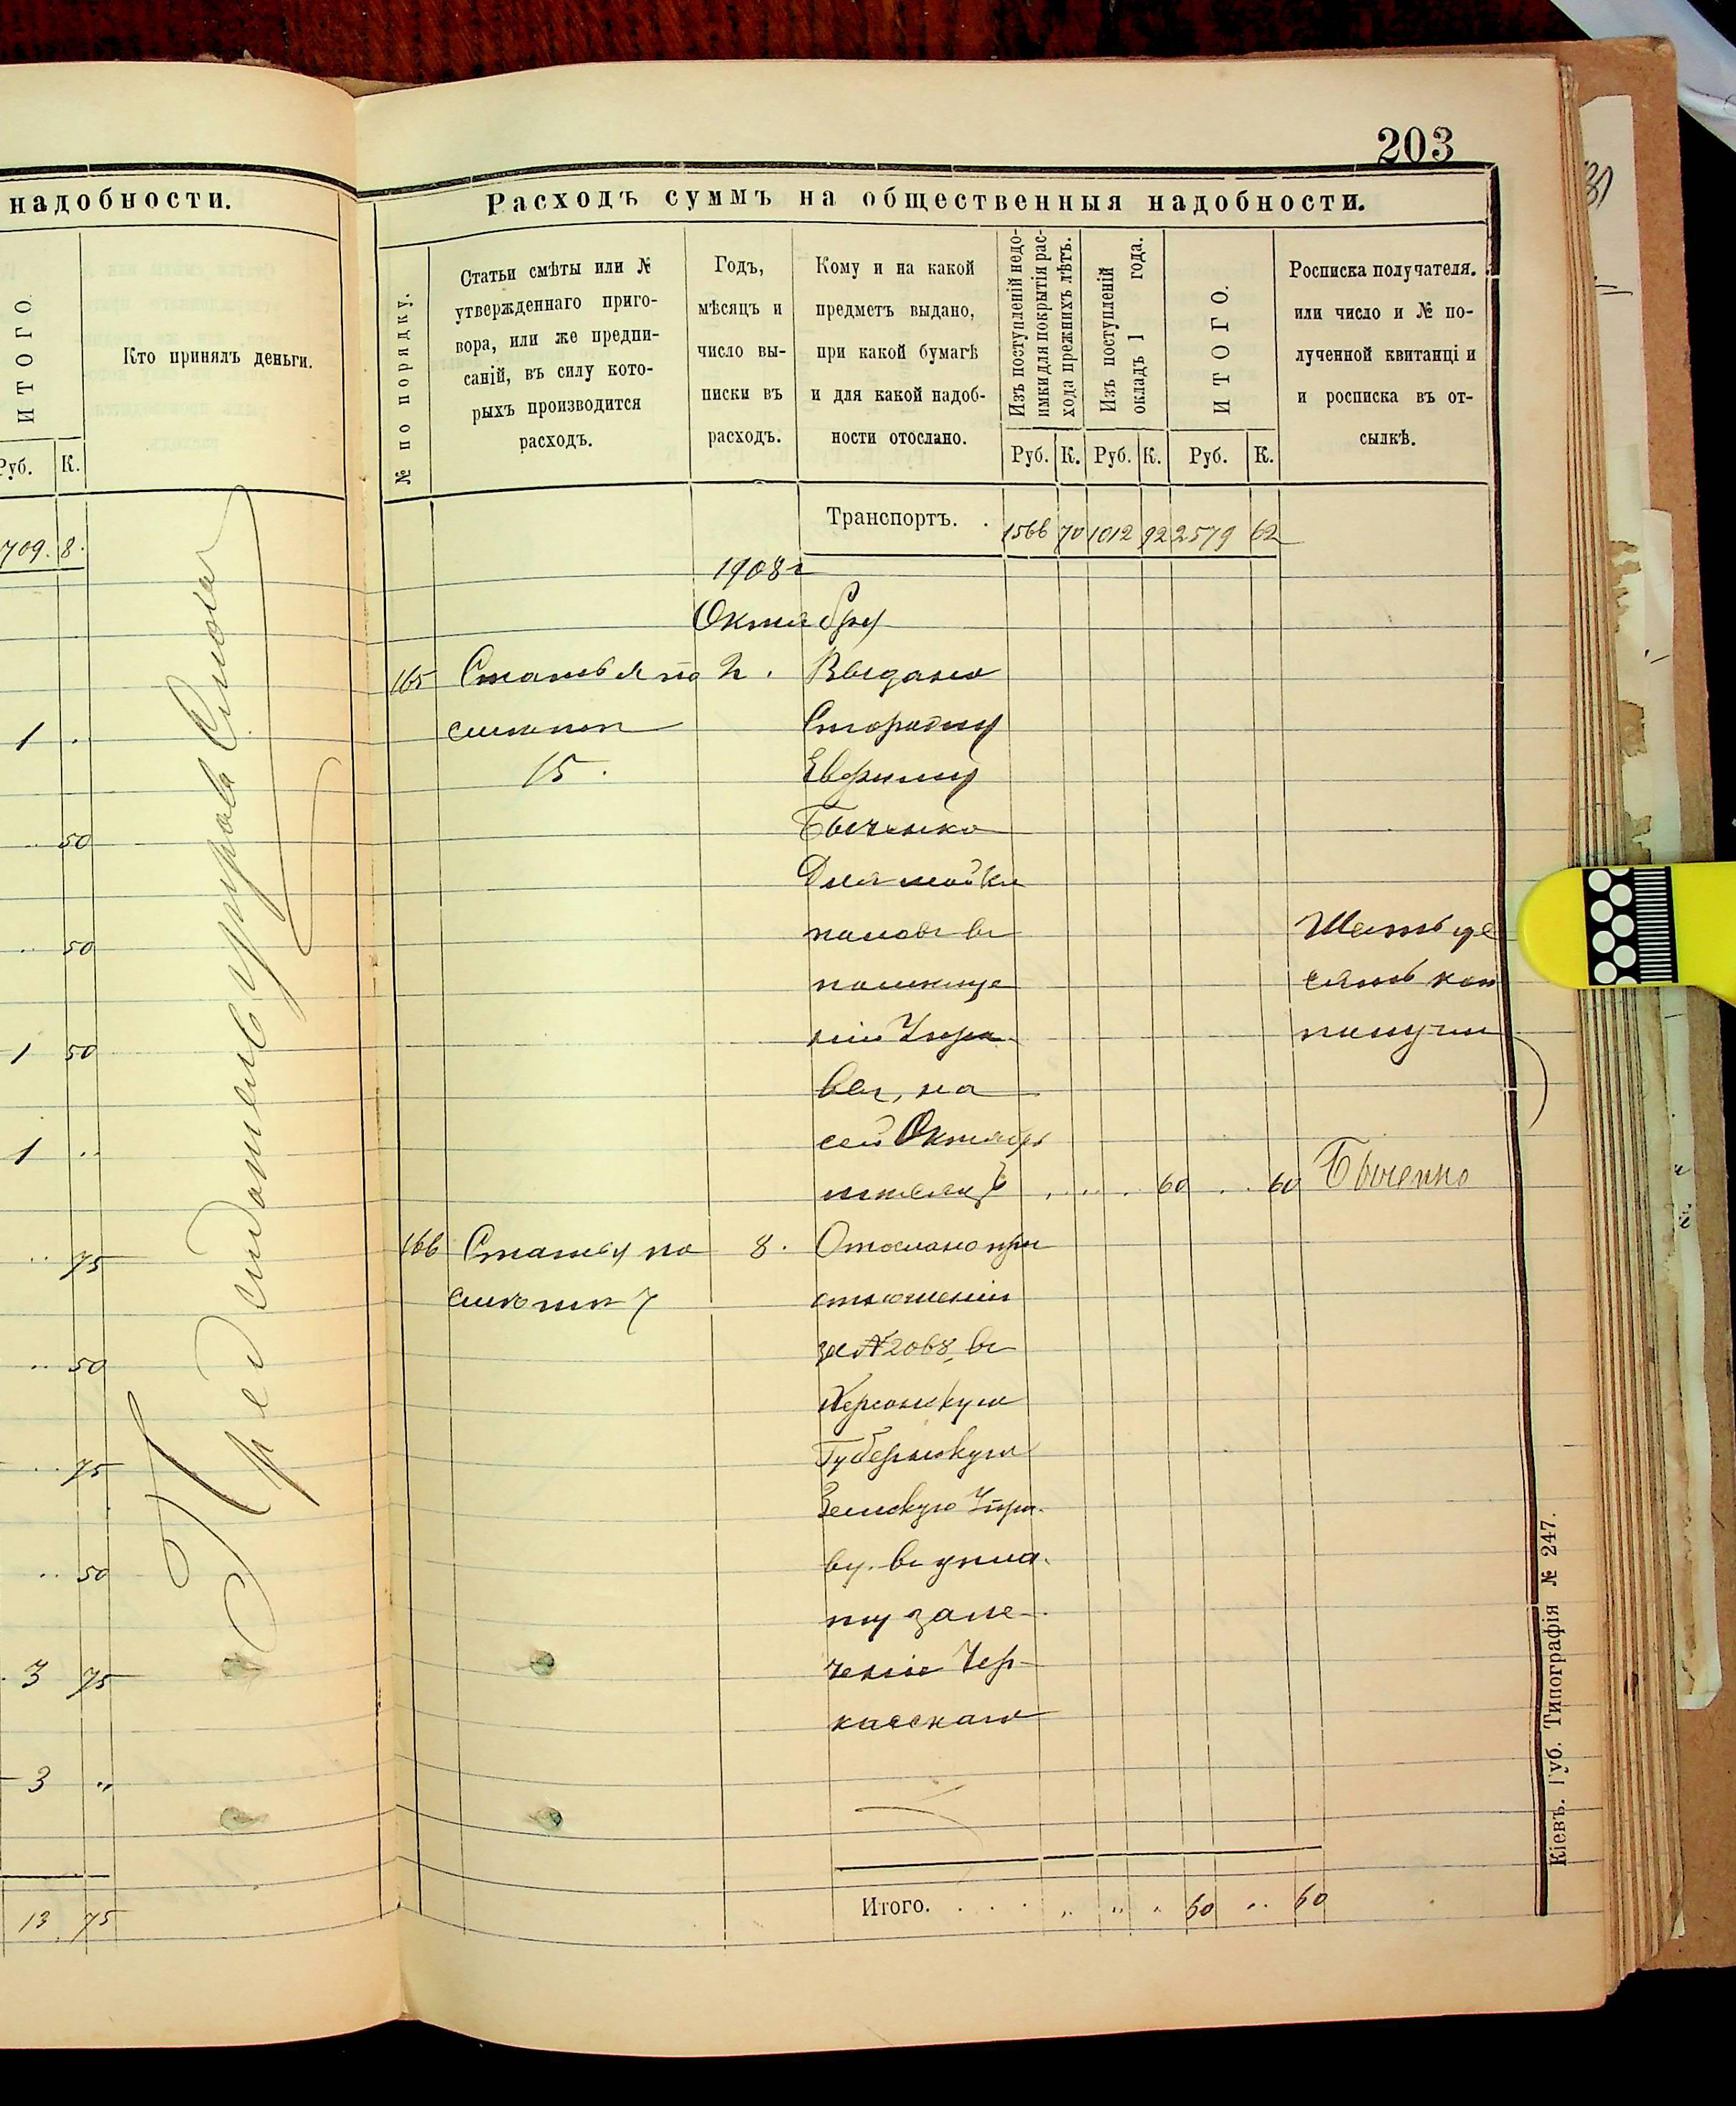 203
надобности.
ИТОГО.
Кто принялъ деньги.
Руб. К.
709. 8.
1 .
.. 50
.. 50
1 50
1 ..
.. 75
.. 50
.. 75
.. 50
3 75
3 "
13 75
Расходъ суммъ на общественныя надобности.
№ по порядку.
Статьи смѣты или №
утвержденнаго приго-
вора, или же предпи-
саній, въ силу кото-
рыхъ производится
расходъ.
Годъ,
мѣсяцъ и
число вы-
писки въ
расходъ.
Кому и на какой
предметъ выдано,
при какой бумагѣ
и для какой надоб-
ности отослано.
Изъ поступленій недо-
имки для покрытія рас-
хода прежнихъ лѣтъ.
Изъ поступленій
окладъ 1 года.
ИТОГО.
Росписка получателя.
или число и № по-
лученной квитанціи
и росписка въ от-
сылкѣ.
Руб. К. Руб. К. Руб. К.
Транспортъ. . 1566 70 1012 92 2579 62
1908 г
Октября
165 Статья по 2. Выдано
смѣтѣ
15.
Быченко
Для мойки
половъ въ
помѣще
ніи Упра
вы, на
сей Октябрь
мѣсяцъ .... 60 .. 60
Шестьде
сятъ коп
получи
Быченко
166 Статья по 8. Отослано при
смѣтѣ 7 отношеніи
за № 2068, въ
Херсонскую
Губернскую
Земскую Упра-
ву. въ упла-
ту за ле-
ченіе Чер-
касскаго
Итого. . . . " " . 60 .. 60
Кіевъ. Губ. Типографія № 247.